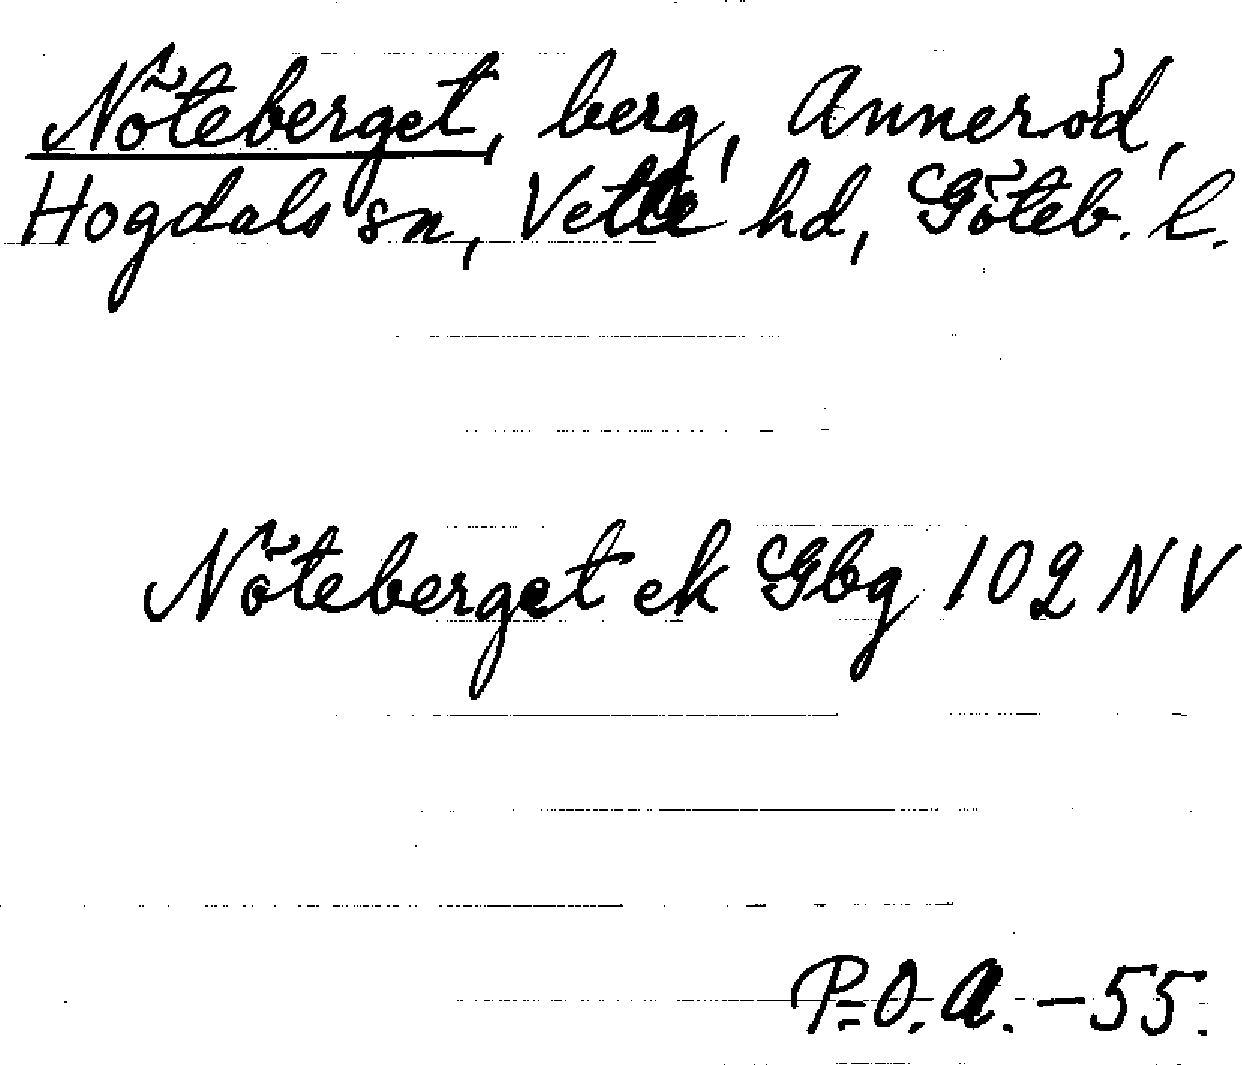 Nöteberget, berg, Anneröd,
Hogdals sn, Vette hd, Göteb. l.
Nöteberget ek Gbg 102 NV
P.O.A. -55.